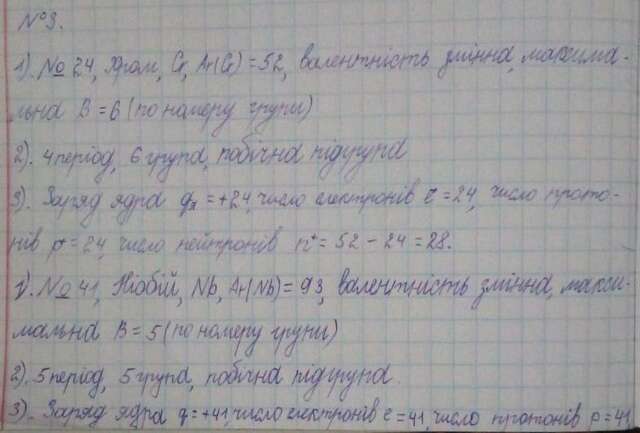 №3.
1). № 24, Хром, Cr, Ar(Cr) = 52, валентність змінна, максима-
льна В = 6 (по номеру групи)
2). 4 період, 6 група, побічна підгрупа
3). Заряд ядра qя = +24, число електронів ē = 24, число прото-
нів p+ = 24, число нейтронів n+ = 52 - 24 = 28.
1). № 41, Ніобій, Nb, Ar(Nb) = 93, валентність змінна, макси-
мальна В = 5 (по номеру групи)
2). 5 період, 5 група, побічна підгрупа.
3). Заряд ядра q = +41, число електронів e = 41, число протонів p = 41